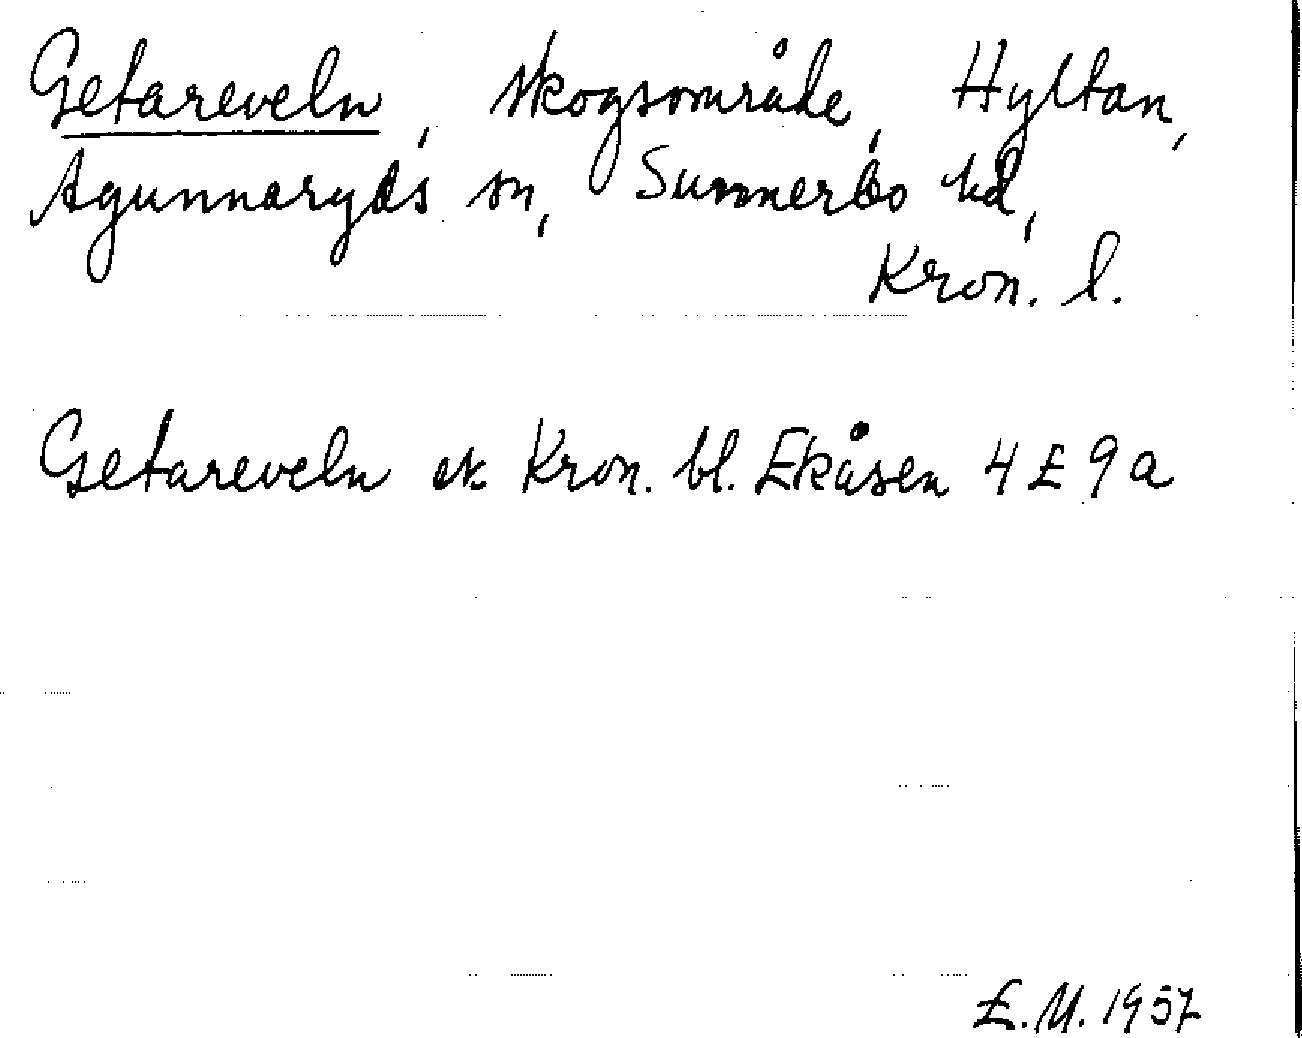 Getareveln, skogsområde, Hyltan,
Agunnaryds sn, Sunnerbo hd,
Kron. l.
Getareveln ek Kron. bl. Ekåsen 4E9a
E.M. 1957